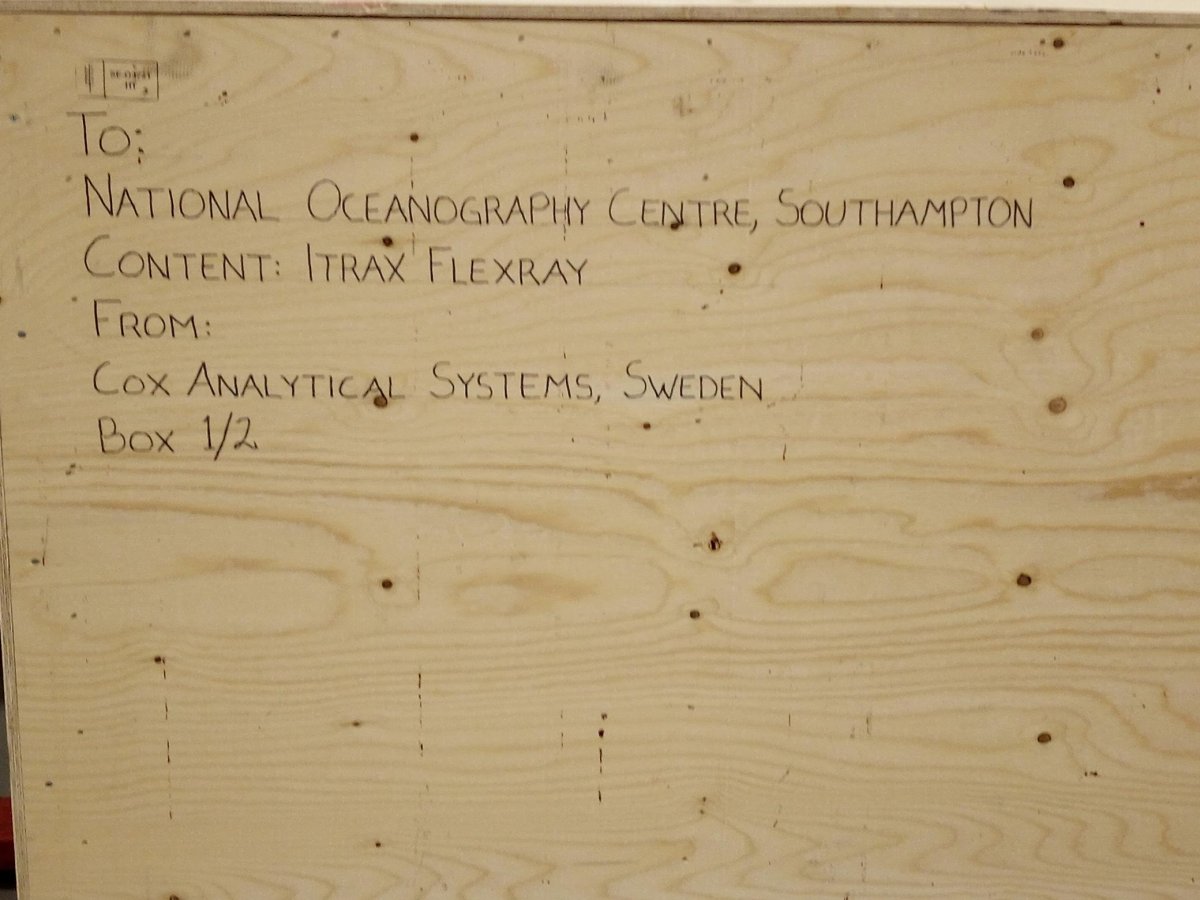 To:
NATIONAL OCEANOGRAPHY CENTRE, SOUTHAMPTON
CONTENT: ITRAX FLEXRAY
FROM:
COX ANALYTICAL SYSTEMS, SWEDEN
BOX 1/2